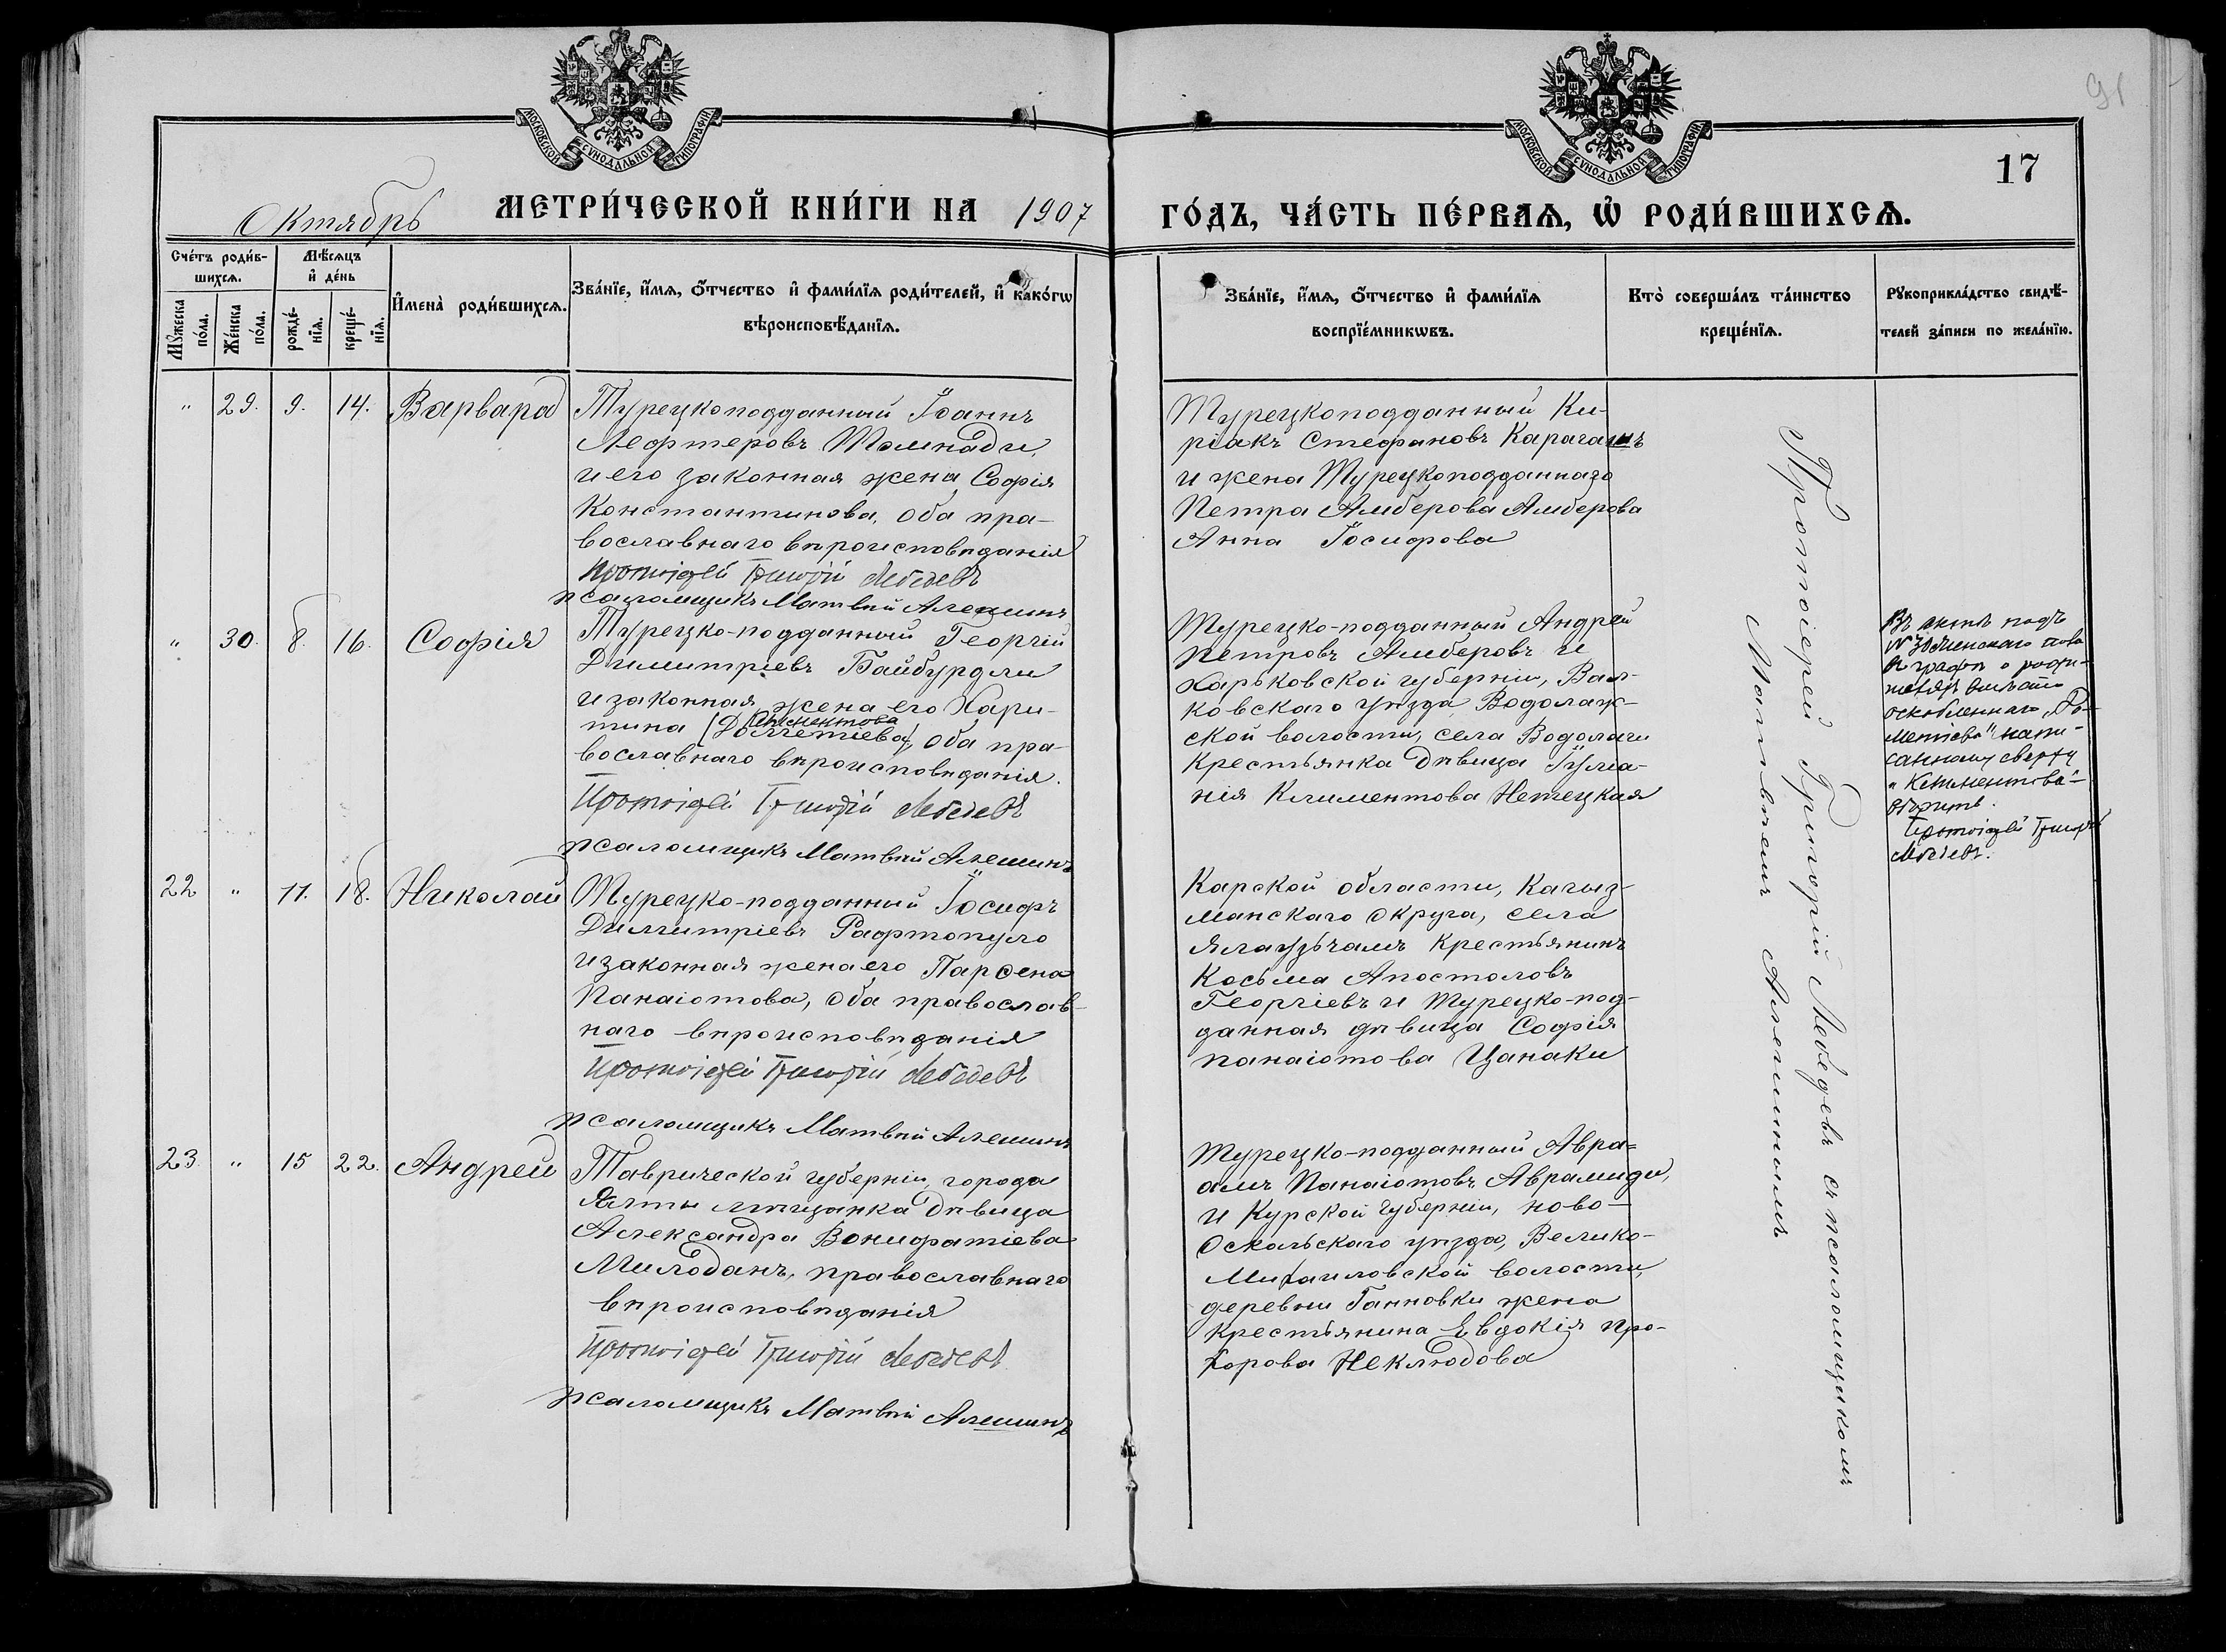 МОСКОВСКОЙ СУНОДАЛЬНОЙ ТИПОГРАФІИ
МОСКОВСКОЙ СУНОДАЛЬНОЙ ТИПОГРАФІИ
91
17
Октябрь МЕТРИ́ЧЕСКОЙ КНИ́ГИ НА 1907 ГО́ДЪ, ЧА́СТЬ ПЕ́РВАѦ, Ѽ РОДИ́ВШИХСѦ.
Сче́тъ роди́в-
шихсѧ.
Мѣ́сѧцъ
и҆ де́нь
Мꙋ́жеска
по́ла.
Же́нска
по́ла.
рожде́-
нїѧ.
креще́-
нїѧ.
И҆мена̀ роди́вшихсѧ.
Зва́нїе, и҆́мѧ, ѻ҆́тчество и҆ фами́лїѧ роди́телей, и҆ како́гѡ
вѣроисповѣ́данїѧ.
Зва́нїе, и҆́мѧ, ѻ҆́тчество и҆ фами́лїѧ
воспрїе́мникѡвъ.
Кто̀ соверша́лъ та́инство
креще́нїѧ.
Рꙋкоприкла́дство свидѣ́-
телей за́писи по жела́нїю.
" 29. 9. 14. Варвара
Турецкоподданный Іоаннъ
Лефтеровъ
и его законная жена Софія
Константинова, оба пра-
вославнаго вѣроисповѣданія
Протоіерей Григорій Лебедевъ
псаломщикъ Матвѣй Алешинъ
Турецкоподданный Ки-
ріакъ Стефановъ
и жена Турецкоподданнаго
Петра Алиберова Алиберова
Анна Іосифова
" 30. 8. 16. Софія
Турецко-подданный Георгій
Димитріевъ Байбурдли
и законная жена его Хари-
тина Климентова
оба пра-
вославнаго вѣроисповѣданія.
Протоіерей Григорій Лебедевъ
псаломщикъ Матвѣй Алешинъ
Турецко-подданный Андрей
Петровъ Алиберовъ и
Харьковской губерніи, Вал-
ковскаго уѣзда, Водолаж-
ской волости, села Водолаги
крестьянка дѣвица Іуліа-
нія Климентова Нетецкая
Въ актѣ подъ
графѣ о роди-
теляхъ вмѣсто
напи-
санному сверху
"Климентова"
вѣрить.
Протоіерей Григорій
Лебедевъ.
22 " 11. 18. Николай
Турецко-подданный Іосифъ
Димитріевъ Рафтопуло
и законная жена его Парѳена
Панаіотова, оба православ-
наго вѣроисповѣданія
Протоіерей Григорій Лебедевъ
псаломщикъ Матвѣй Алешинъ
Карской области, Кагыз-
манскаго округа, села
Ялагузъчамъ крестьянинъ
Косьма Апостоловъ
Георгіевъ и Турецко-под-
данная дѣвица Софія
Панаіотова Цанаки
23. " 15 22. Андрей
Таврической губерніи, города
Ялты мѣщанка дѣвица
Александра Вонифатіева
Милобанъ, православнаго
вѣроисповѣданія
Протоіерей Григорій Лебедевъ
псаломщикъ Матвѣй Алешинъ
Турецко-подданный Авра-
амъ Панаіотовъ Аврамиди,
и Курской губерніи, Ново-
Оскольскаго уѣзда, Велико-
Михаиловской волости,
деревни Ганновки жена
крестьянина Евдокія Про-
хорова Неклюдова
Протоіерей Григорій Лебедевъ съ псаломщикомъ
Матвѣемъ Алешинымъ